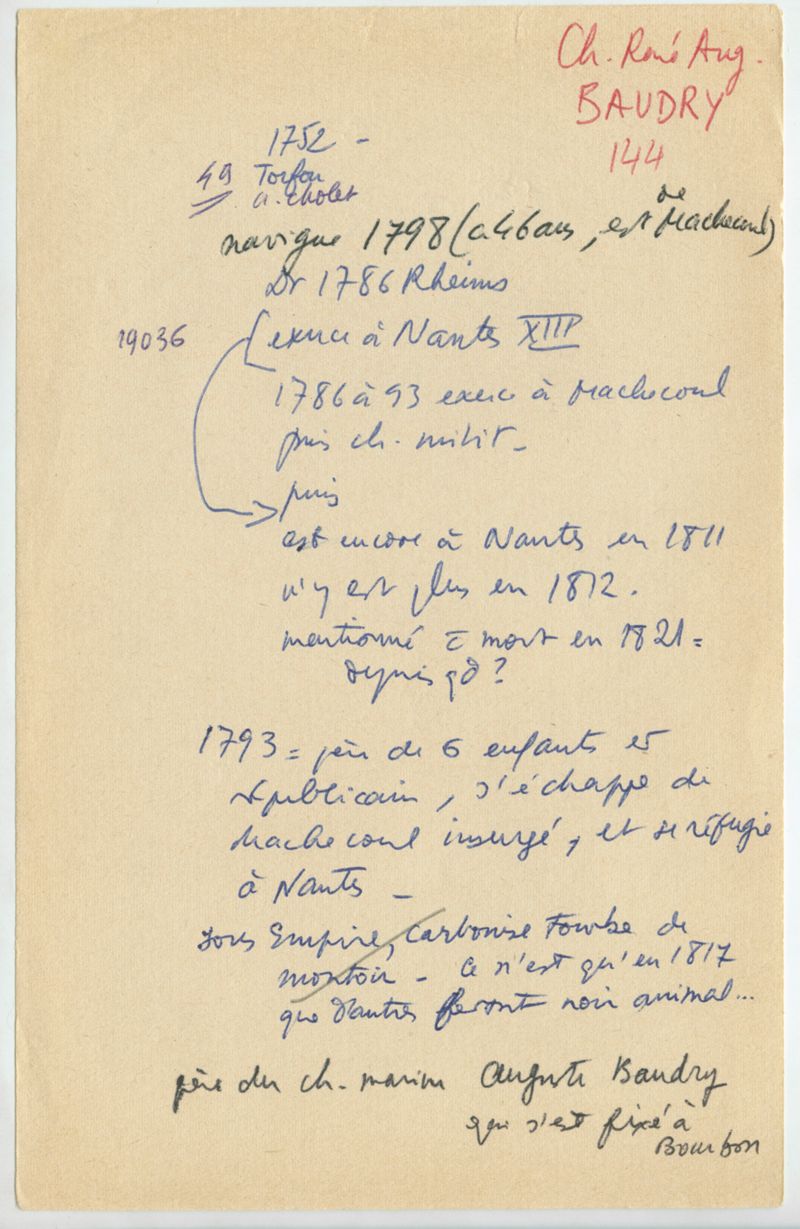 Ch. René Aug.
BAUDRY
144
1752 -
49 Torfou
a. cholet
navigue 1798 (a 46 ans, est de Machecoul)
Dr 1786 Rheims
19036
exerce à Nantes XIII
1786 à 93 exerce à Machecoul
puis ch. milit -
puis
est encore à Nantes en 1811
n'y est plus en 1812.
mentionné = mort en 1821 =
depuis qd ?
1793 = père de 6 enfants et
républicain, s'échappe de
Machecoul insurgé, et se réfugie
à Nantes -
sous Empire, carbonise Tourbe de
montoir - ce n'est qu'en 1817
que d'autres feront noir animal...
père du ch. marine Auguste Baudry
qui s'est fixé à
Bourbon